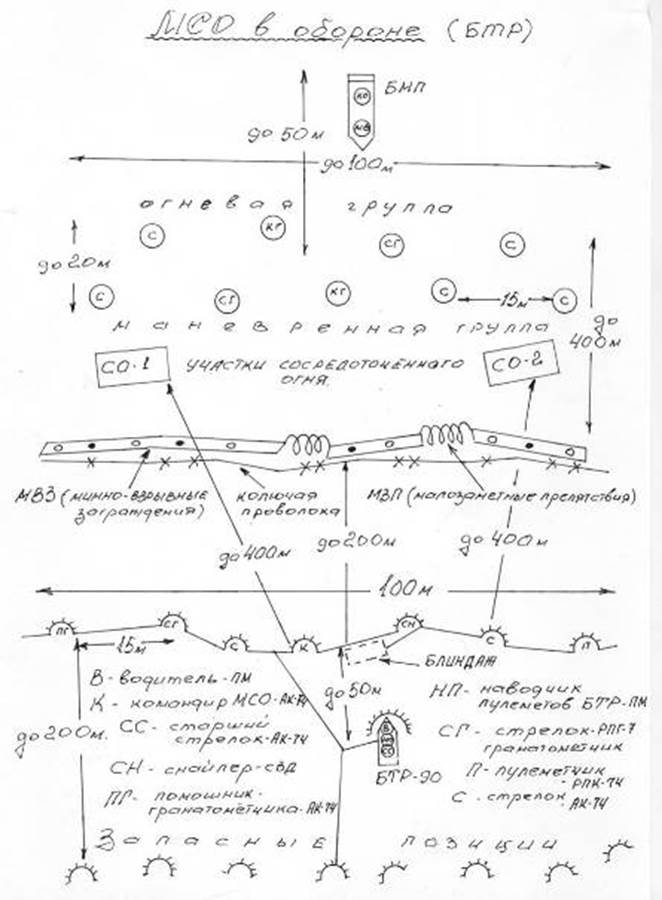 МСО в обороне (БТР)
БМП
КО
НВ
до 50м
до 100м
огневая группа
С
КГ
СГ
С
до 20м
С
СГ
КГ
С
15м
С
до 400м
маневренная группа
СО-1
УЧАСТКИ СОСРЕДОТОЧЕННОГО
ОГНЯ.
СО-2
МВЗ (минно-взрывные
заграждения)
колючая
проволока
МЗП (малозаметные препятствия)
до 400м
до 200м
до 400м
100м
ПГ
СГ
С
К
СН
С
П
15м
БЛИНДАЖ
В-водитель-ПМ
К-командир МСО-АК-74
СС-старший
стрелок-АК-74
СН-снайпер-СВД
ПГ-помошник-
гранатометчика-АК-74
до 200м.
до 50м
БТР-90
НП-наводчик
пулеметов БТР-ПМ
СГ-стрелок-РПГ-7
гранатометчик
П-пулеметчик
-РПК-74
С-стрелок
АК-74
Запасные позиции